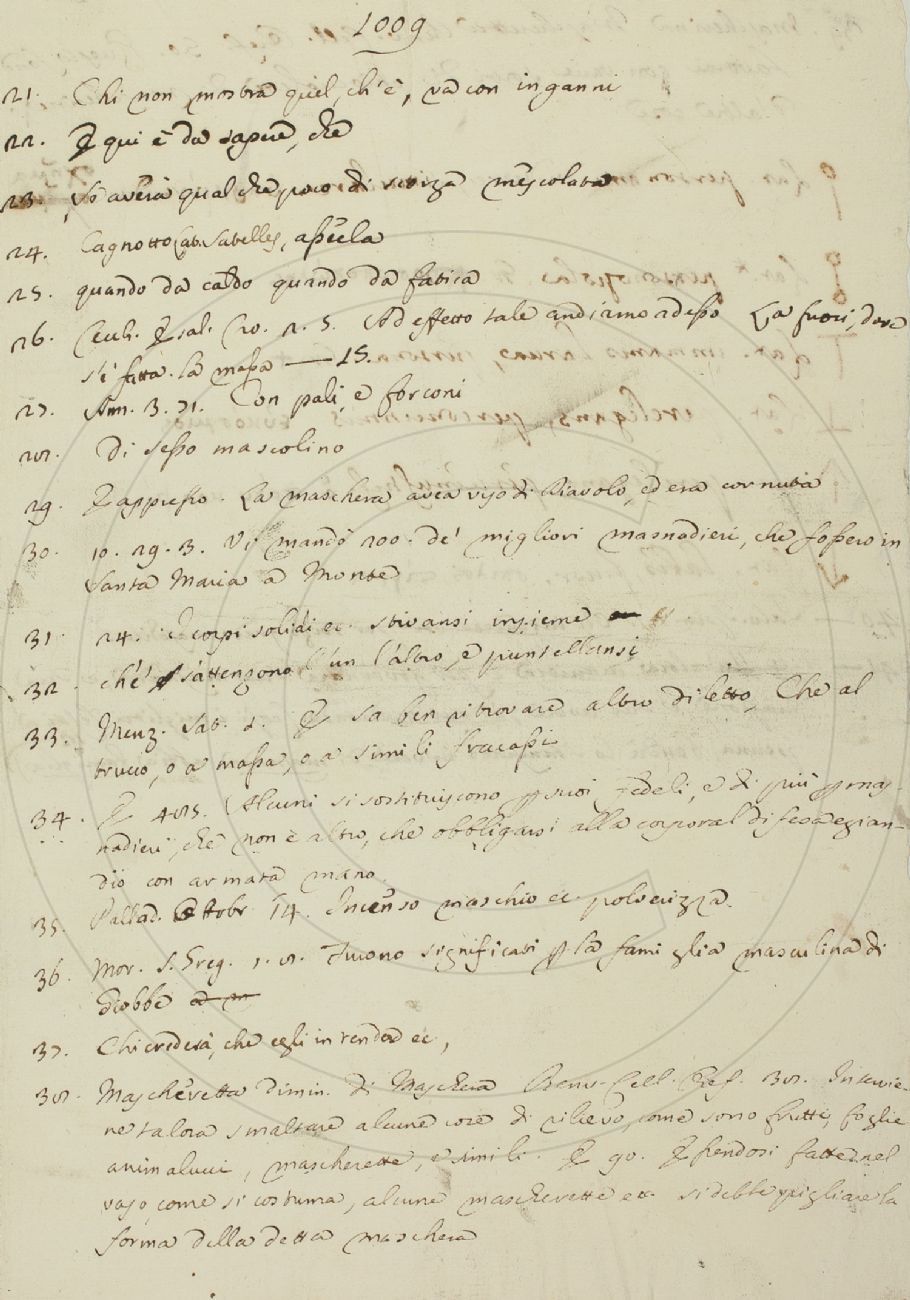 1009
21. Chi non mostra quel, ch'è, va con inganni
22. E qui è da sapere, che
23. Se averà qualche poco di scorza mescolata
24. Cagnotto Lat. Satelles, assecla
25. quando da caldo quando da fatica
26. Cecch. Esal. Cr. 2. 5. Ad effetto tale andiamo adesso Là fuori, dove
si è fatta la massa — 15.
27. Ann. 3. 71. Con pali, e forconi
28. Di sesso mascolino
29. E appresso. La maschera avea viso di diavolo, ed era cornuta
30. 10. 29. 3. Vi mandò 200. de' migliori masnadieri, che fossero in
Santa Maria a Monte
31. 24. I corpi solidi ec. stivansi insieme
32. che s'attengono l'un l'altro, e puntellansi
33. Menz. Sat. 2. E sa ben ritrovare altro diletto, Che al
trucco, o a massa, o a simili fracassi
34. E 405. Alcuni si sostituiscono p suoi Fedeli, e di più p mas-
nadieri, che non è altro, che obbligarsi alla corporal difesa ezian-
dio con armata mano.
35. Pallad. Ottobr. 14. Incenso maschio ec. polverizza.
36. Mor. S. Greg. 1. 8. Furono significati p la famiglia masculina di
Giobbe
37. Chi crederà, che egli intenda ec,
38. Mascheretta dimin. di Maschera Benv. Cell. Oref. 38. Intervie-
ne talora smaltare alcune cose di rilievo, come sono frutti, foglie
animalucci, mascherette, e simili. E 90. Essendosi fatte nel
vaso, come si costuma, alcune mascherette ec. si debbe pigliare la
forma della detta maschera